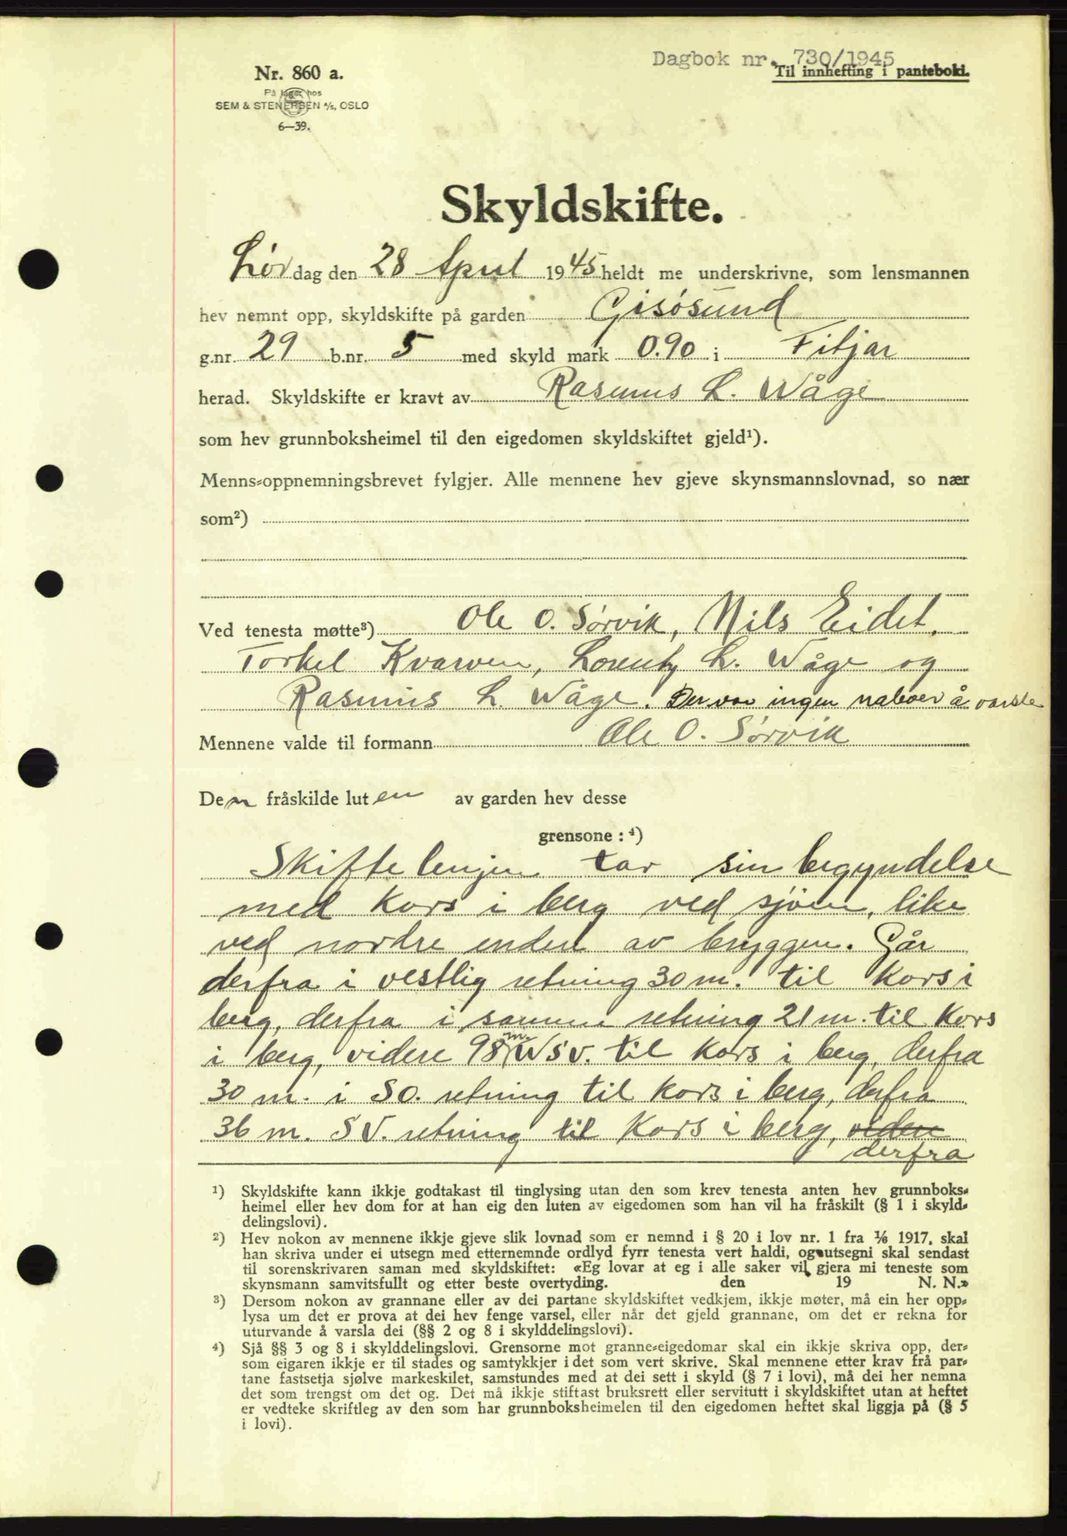 Dagbok nr. 730/1945
Nr. 860 a.
Til innhefting i pantebok.
På lager hos
SEM & STENERSEN A/S, OSLO
6—39.
Skyldskifte.
Lørdag den 28 April 1945 heldt me underskrivne, som lensmannen
hev nemnt opp, skyldskifte på garden Gisøsund
g.nr. 29 b.nr. 5 med skyld mark 0.90 i Fitjar
herad. Skyldskifte er kravt av Rasmus L. Wåge
som hev grunnboksheimel til den eigedomen skyldskiftet gjeld¹).
Menns-oppnemningsbrevet fylgjer. Alle mennene hev gjeve skynsmannslovnad, so nær
som²)
Ved tenesta møtte³) Ole O. Sørvik, Nils Eidet,
Torkel Kvarven, Lorentz L. Wåge og
Rasmus L. Wåge. Der var ingen naboer å varsle
Mennene valde til formann Ole O. Sørvik
Den fråskilde luten av garden hev desse
grensone : ⁴)
Skiftelinjen tar sin begyndelse
med Kors i berg ved sjøen, like
ved nordre enden av bryggen. Går
derfra i vestlig retning 30 m. til Kors i
berg, derfra i samme retning 21 m. til Kors
i berg, videre 98 m WSV. til Kors i berg, derfra
30 m. i SO. retning til Kors i berg, derfra
36 m. SV. retning til Kors i berg, videre
derfra
¹) Skyldskifte kann ikkje godtakast til tinglysing utan den som krev tenesta anten hev grunnboks-
heimel eller hev dom for at han eig den luten av eigedomen som han vil ha fråskilt (§ 1 i skyld-
delingslovi).
²) Hev nokon av mennene ikkje gjeve slik lovnad som er nemnd i § 20 i lov nr. 1 fra 1/6 1917, skal
han skriva under ei utsegn med etternemnde ordlyd fyrr tenesta vert haldi, og utsegni skal sendast
til sorenskrivaren saman med skyldskiftet: «Eg lovar at eg i alle saker vil gjera mi teneste som
skynsmann samvitsfullt og etter beste overtyding. den 19 N. N.»
³) Dersom nokon av grannane eller av dei partane skyldskiftet vedkjem, ikkje møter, må ein her opp-
lysa um det er prova at dei hev fenge varsel, eller når det gjeld grannane, om det er rekna for
uturvande å varsla dei (§§ 2 og 8 i skylddelingslovi).
⁴) Sjå §§ 3 og 8 i skylddelingslovi. Grensorne mot granne-eigedomar skal ein ikkje skriva opp, der-
som eigaren ikkje er til stades og samtykkjer i det som vert skrive. Skal mennene etter krav frå par-
tane fastsetja sjølve markeskilet, samstundes med at dei sett i skyld (§ 7 i lovi), må dei her nemna
det som trengst om det og. Det må ikkje stiftast bruksrett eller servitutt i skyldskiftet utan at heftet
er vedteke skriftleg av den som har grunnboksheimelen til den eigedomen heftet skal liggja på (§ 5
i lovi).